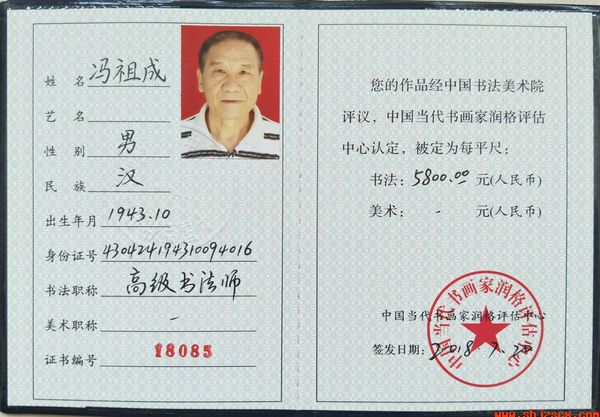 姓名 冯祖成
艺名
性别 男
民族 汉
出生年月 1943.10
身份证号 430424194310094016
书法职称 高级书法师
美术职称 -
证书编号 18085
您的作品经中国书法美术院
评议，中国当代书画家润格评估
中心认定，被定为每平尺：
书法：5800.00 元(人民币)
美术： - 元(人民币)
中国当代书画家润格评估中心
签发日期：2018.7.20
中国当代书画家润格评估中心
www.shjzscx.com